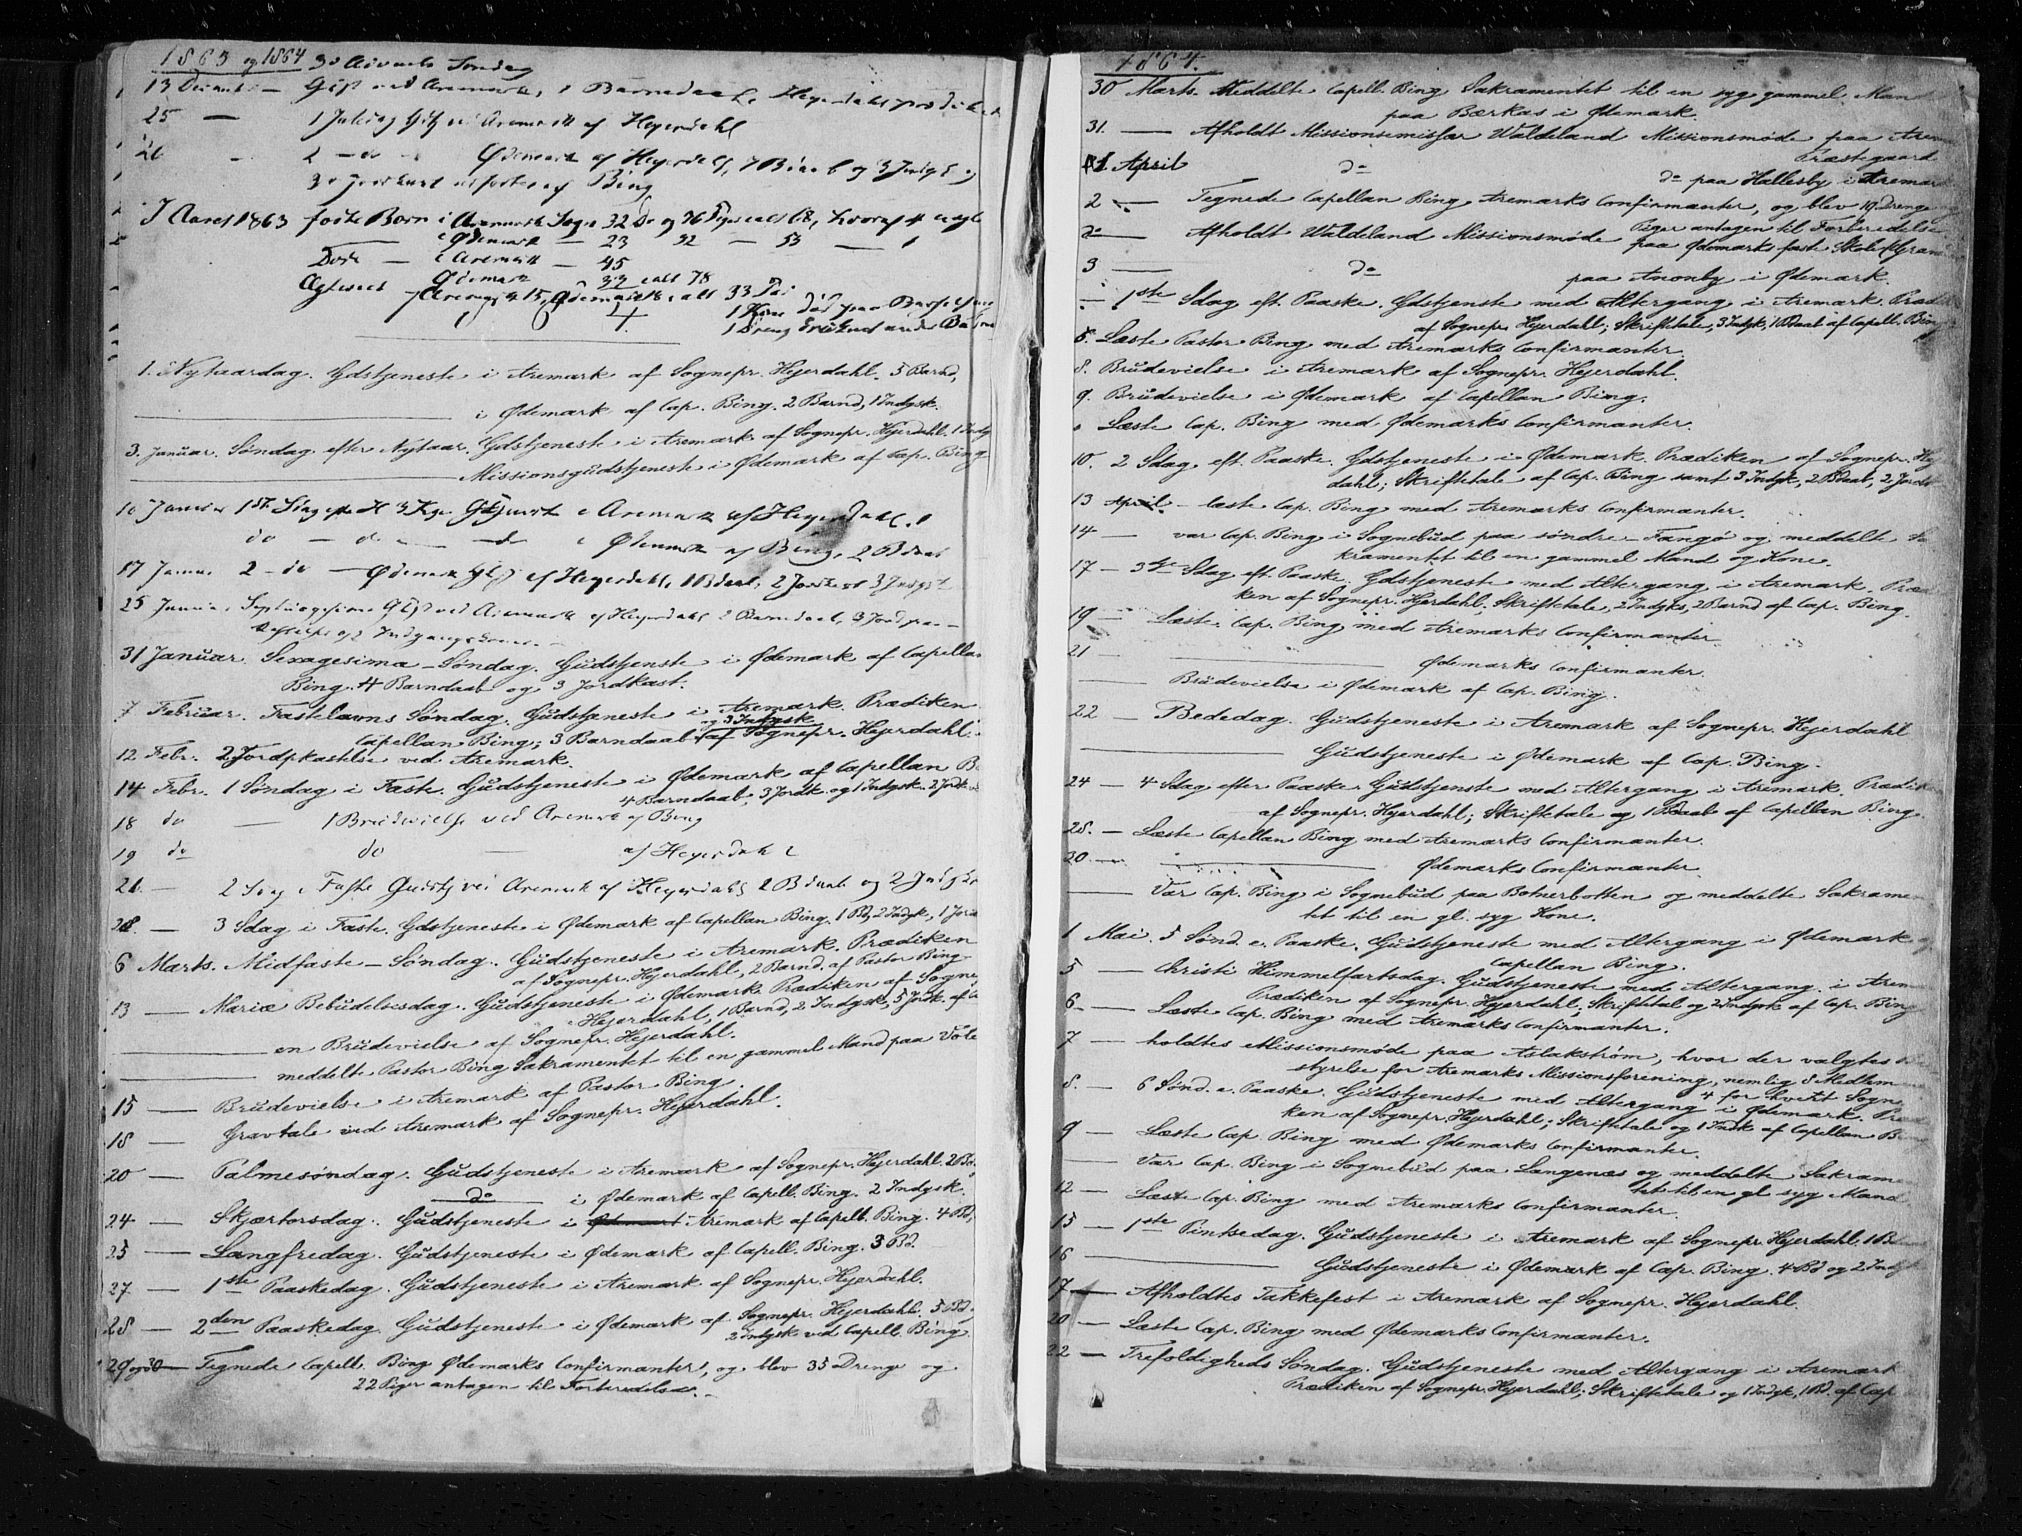 1863 og 1864 3d Advents Søndag
13 December — Gtjst ved Aremark, Barnedaab, Heyerdahl prædik
25 — 1 Juledag Gtj. ved Aremark af Heyerdahl
26 2 - do - Ødemark af Heyerdahl, 7 Bdaab og 3 Indgk og
3 Jordkast af Bing
I Aaret 1863 fødte Børn i Aremark Sogn 32 D og 36 Piger ialt 68, hvoraf 4 uægte
— i Ødemark — 23 32 — 55 — 1
Døde — i Aremark — 45
Ødemark 33 ialt 78
Ægteviet Aremark 15, Ødemark ialt 33 Par
1 Kone død paa Barselseng
1 Dreng
1. Nytaarsdag. Gdstjeneste i Aremark af Sognepr. Hejerdahl. 5 Barnd,
i Ødemark af Cap. Bing. 2 Barnd, 1 Indgsk.
3. Januar. Søndag efter Nytaar. Gdstjeneste i Aremark af Sognepr. Hejerdahl. 1 Indg
Missionsgudstjeneste i Ødemark af Cap. Bing
10 Januar 1st Sdag efter H 3 Kger Gtjenest i Aremark af Heyerdahl.
do — do — do i Ødemark af Bing, 2 Bdaab
17 Januar 2 - do — Ødemark af Heyerdahl, 1 Bdaab, 2 Jordkast 3 Indgsk
25 Januar Septuagesima Gtj ved Aremark af Heyerdahl 2 Barnedaab, 3 Jordpaa-
kastelse og 2 Indgangskoner.
31 Januar. Sexagesima - Søndag. Gudstjeneste i Ødemark af Capellan
Bing. 4 Barndaab og 3 Jordkast.
7 Februar. Fastelavns Søndag. Gudstjeneste i Aremark. Prædiken
og 3 Indgsk
Capellan Bing; 3 Barndaab af Sognepr. Hejerdahl.
12 Febr. 2 Jordpkastelse ved Aremark.
14 Febr. 1 Søndag i Faste. Gudstjeneste i Ødemark af Capellan B
4 Barndaab, 3 Jordk. og 1 Indgsk. 2 Jordk
18 do — 1 Brudevielse ved Aremark af Bing
19 do do — af Heyerdahl
21. — 2 Sdag i Faste Gudstj ved Aremark af Heyerdahl 2 Bdaab og 2 Indgk
28. — 3 Sdag i Faste. Gdstjeneste i Ødemark af Capellan Bing. 1 Bd, 2 Indgk, 1 Jord
6 Marts. Midfaste - Søndag. Gudstjeneste i Aremark. Prædiken
af Sognepr. Hejerdahl, 2 Barnd. af Pastor Bing
13 — Mariæ Bebudelsesdag. Gudstjeneste i Ødemark. Prædiken af Sogne
Hejerdahl, 1 Barnd, 2 Indgsk, 5 Jordk. af C
— en Brudevielse af Sognepr. Hejerdahl.
— meddelte Pastor Bing Sakramentet til en gammel Mand paa
15 — Brudevielse i Aremark af Pastor Bing.
18 — Gravtale ved Aremark af Sognepr. Hejerdahl.
20 — Palmesøndag. Gudstjeneste i Aremark af Sognepr. Hejerdahl. 2 Bd.
do i Ødemark af Capell. Bing. 2 Indgsk.
24 — Skjærtorsdag. Gudstjeneste i Ødemark Aremark af Capell. Bing. 4 Bd,
25 — Langfredag. Gudstjeneste i Ødemark af Capell. Bing. 3 Bd.
27 — 1ste Paaskedag. Gudstjeneste i Aremark af Sognepr. Hejerdahl.
28 — 2den Paaskedag. Gudstjeneste i Ødemark af Sognepr. Hejerdahl. 5 Bd.
2 Indgsk ved Capell. Bing
29 og 30 — Tegnede Capell. Bing Ødemarks Confirmanter, og blev 35 Drenge og
22 Piger antagen til Forberedelse.
1864.
30 Marts. Meddelte Capell. Bing Sakramentet til en syg gammel Mand
paa Bærkas i Ødemark.
31. — Afholdt Missionsemissær Waldeland Missionsmøde paa Aremark
Præstegaard
1 April do do paa Hallesby i Aremark
2 — Tegnede Capellan Bing Aremarks Confirmanter, og blev 19 Drenge og
Piger antagen til Forberedelse
do — Afholdt Waldeland Missionsmøde paa Ødemarks faste Skole
3 — do paa Anonby i Ødemark.
— 1ste Sdag eft. Paaske. Gdstjeneste med Altergang i Aremark. Præd
af Sognepr. Hejerdahl; Skriftetale, 3 Indgk. 1 Bdaab af Capell. Bing
5. Læste Pastor Bing med Aremarks Confirmanter.
8. Brudevielse i Aremark af Sognepr. Hejerdahl.
9. Brudevielse i Ødemark af Capellan Bing.
Læste Cap. Bing med Ødemarks Confirmanter.
10. 2 Sdag eft. Paaske. Gdstjeneste i Ødemark. Prædiken af Sognepr. Hejer
dahl; Skriftetale af Cap. Bing samt 3 Indgk, 2 Bdaab, 2 Jordk
13 April - læste Cap. Bing med Aremarks Confirmanter.
14 — var Cap. Bing i Sognebud paa søndre Fangø og meddelte Sa
kramentet til en gammel Mand og Kone.
17 — 3die Sdag eft. Paaske. Gdstjeneste med Altergang i Aremark. Prædi
ken af Sognepr. Hjerdahl. Skriftetale, 2 Indgks, 2 Barnd af Cap. Bing.
19 — Læste Cap. Bing med Aremarks Confirmanter.
21 — Ødemarks Confirmanter.
— Brudevielse i Ødemark af Cap. Bing.
22 — Bededag. Gudstjeneste i Aremark af Sognepr. Hejerdahl
— Gudstjeneste i Ødemark af Cap. Bing.
24 — 4 Sdag efter Paaske. Gudstjenste med Altergang i Aremark. Prædik
af Sognepr. Hejerdahl; Skriftetale og 1 Bdaab af Capellan Bing.
28. — Læste Capellan Bing med Aremarks Confirmanter.
30. — Ødemarks Confirmanter.
— Var Cap. Bing i Sognebud paa Botnerbotten og meddelte Sakramen
tet til en gl. syg Kone.
1 Mai. 5 Sønd. e. Paaske. Gudstjeneste med Altergang i Ødemark af
Capellan Bing.
5 — Christi Himmelfartsdag. Gudstjeneste med Altergang i Arem
Prædiken af Sognepr. Hejerdahl; Skriftetal og 2 Indgsk af Cap. Bing
6 — Læste Cap. Bing med Aremarks Confirmanter.
7 — holdtes Missionsmøde paa Aslakstrøm, hvor der valgtes
styrelse for Aremarks Missionsforening, nemlig 8 Medlem
4 for hvert Sogn
8. — 6 Sønd. e. Paaske. Gudstjeneste med Altergang i Ødemark. Præd
ken af Sognepr. Hejerdahl; Skriftetale og 1 Indk af Capellan B
9 — Læste Cap. Bing med Ødemarks Confirmanter.
— Var Cap. Bing i Sognebud paa Langenæs og meddelte Sakramen
tet til en gl syg Mand
12 — Læste Cap. Bing med Aremarks Confirmanter.
15 — 1ste Pintsedag. Gudstjeneste i Aremark af Sognepr. Hejerdahl. 1 B
16 — Gudstjeneste i Ødemark af Cap. Bing. 4 Bd og 2 Indgk
17 — Afholdtes Takkefest i Aremark af Sognepr. Hejerdahl.
20 — Læste Cap. Bing med Ødemarks Confirmanter.
22 — Trefoldigheds Søndag. Gudstjeneste med Altergang i Aremark
Prædiken af Sognepr. Hejerdahl; Skriftetale og 1 Indgk, 1 Bd. af Cap